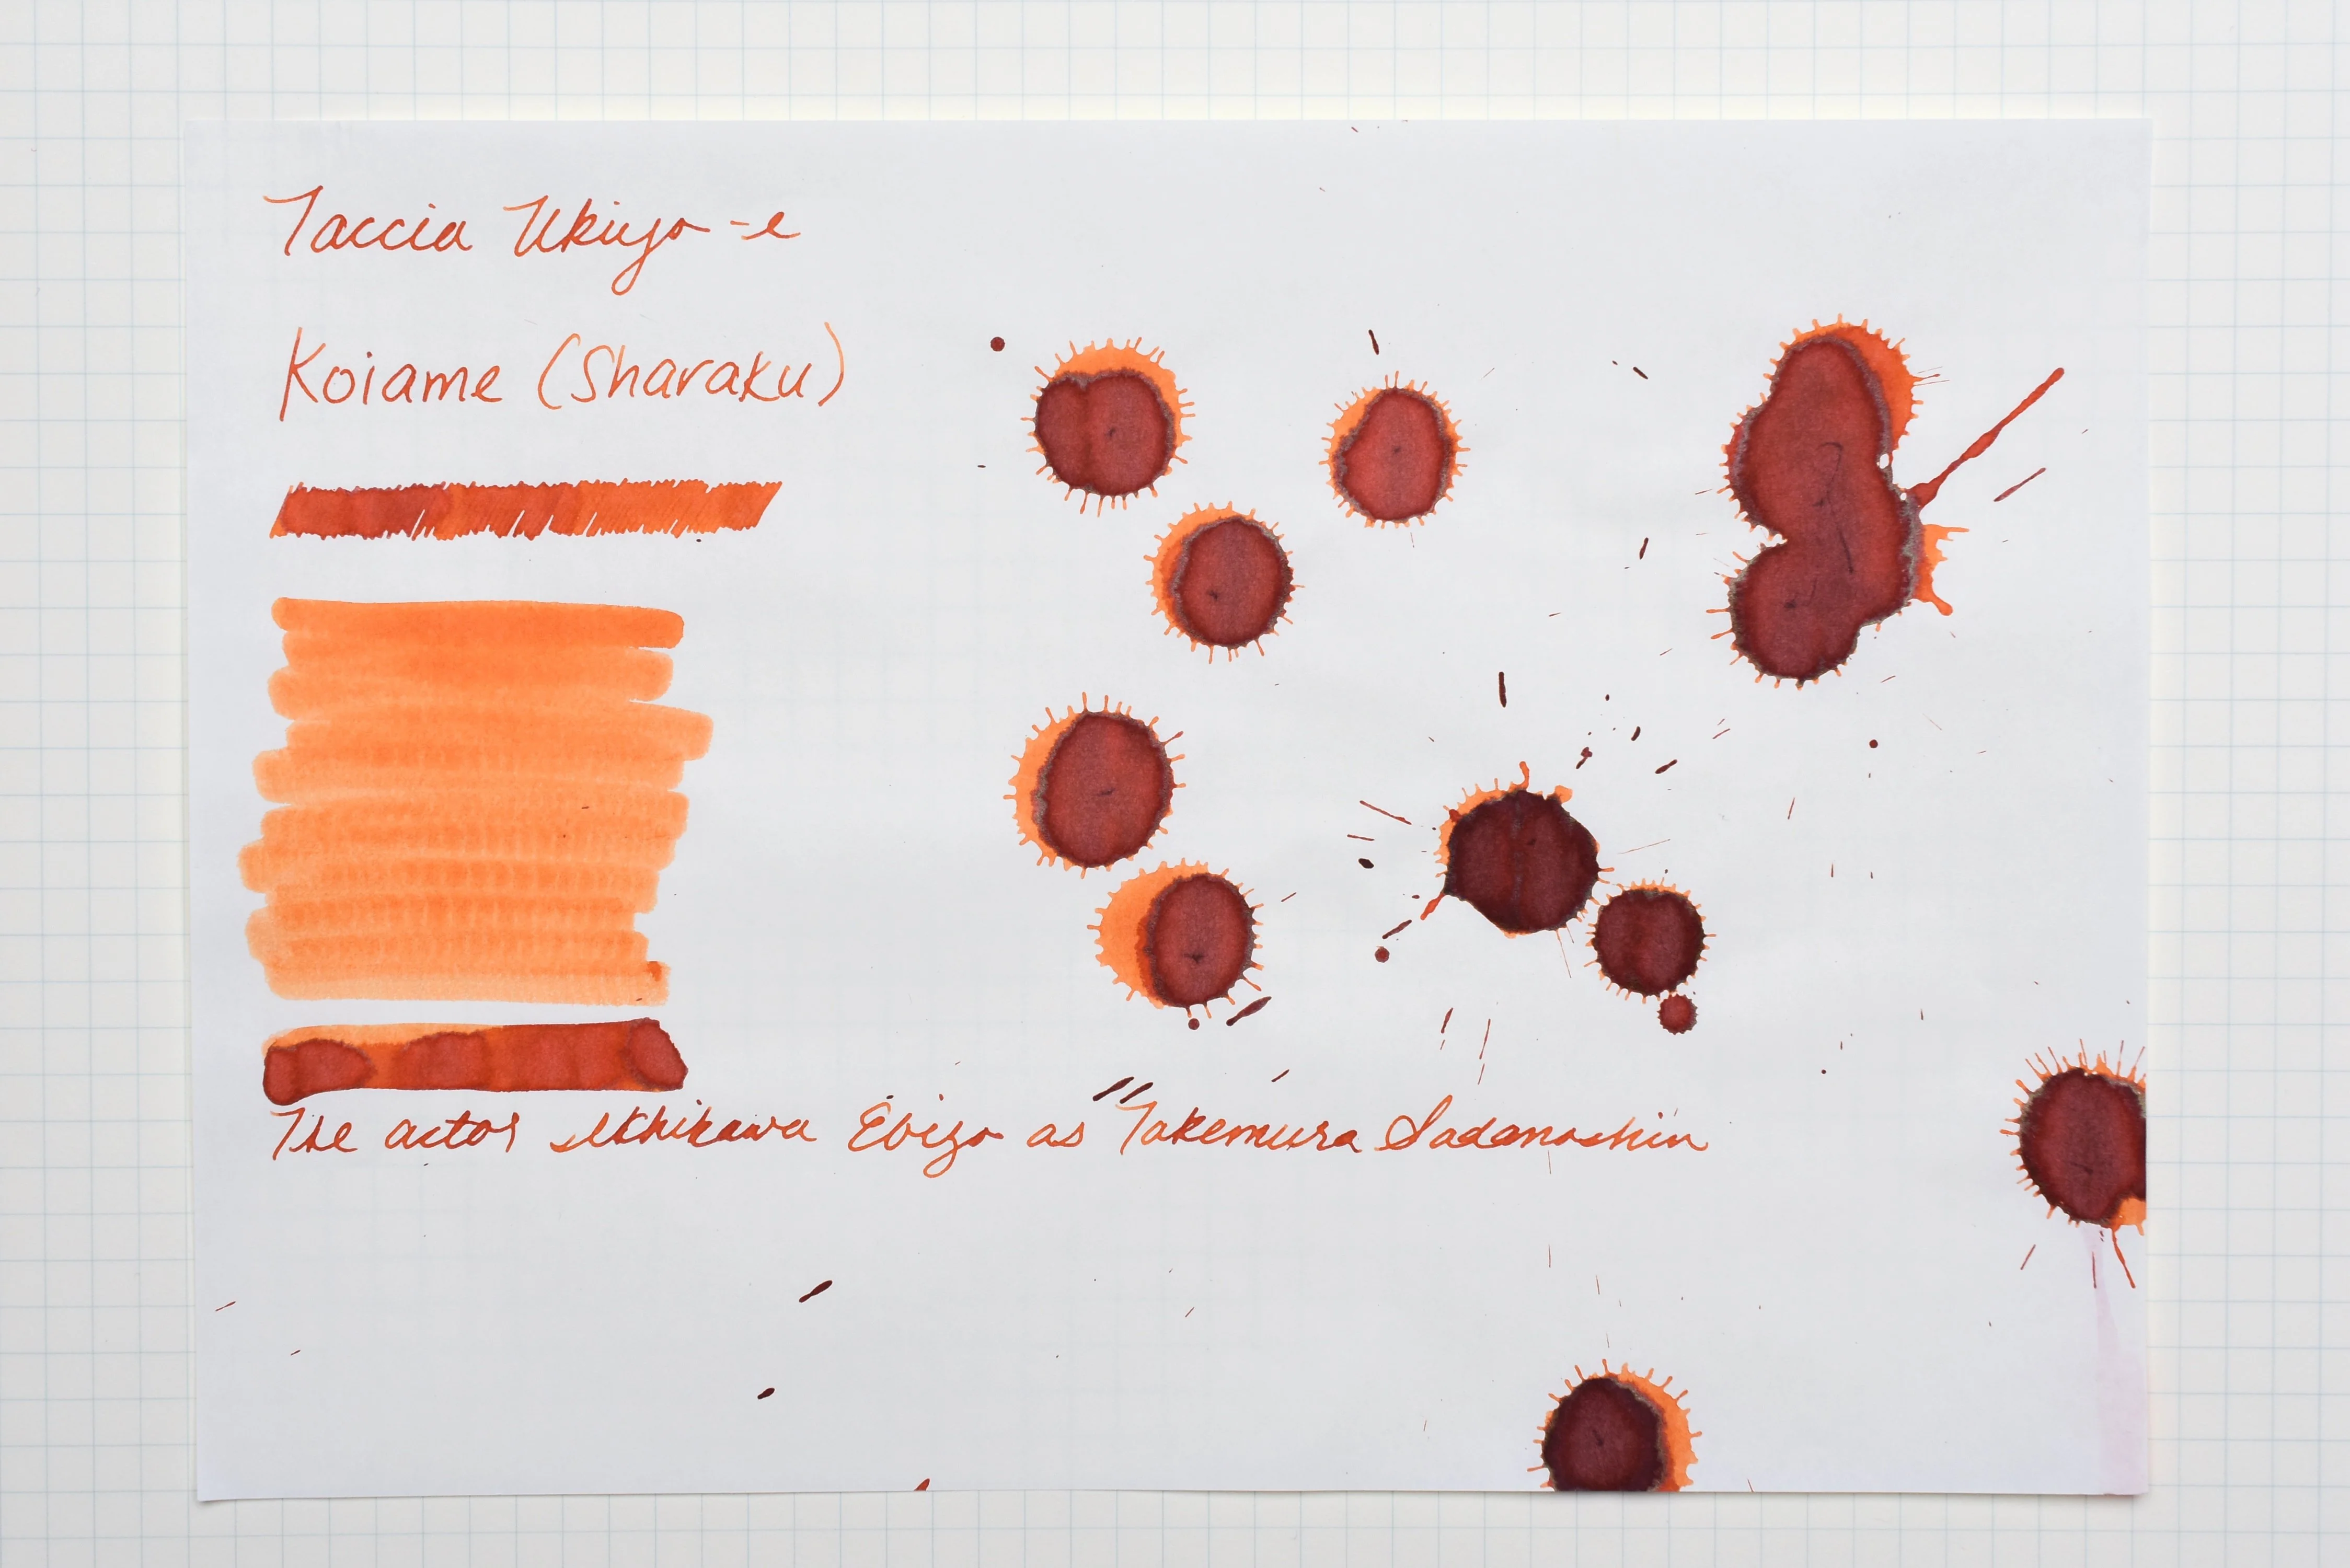 Taccia Ukiyo-e
Koiame (Sharaku)
The actor Ichikawa Ebizo as Takemura Sadanoshin